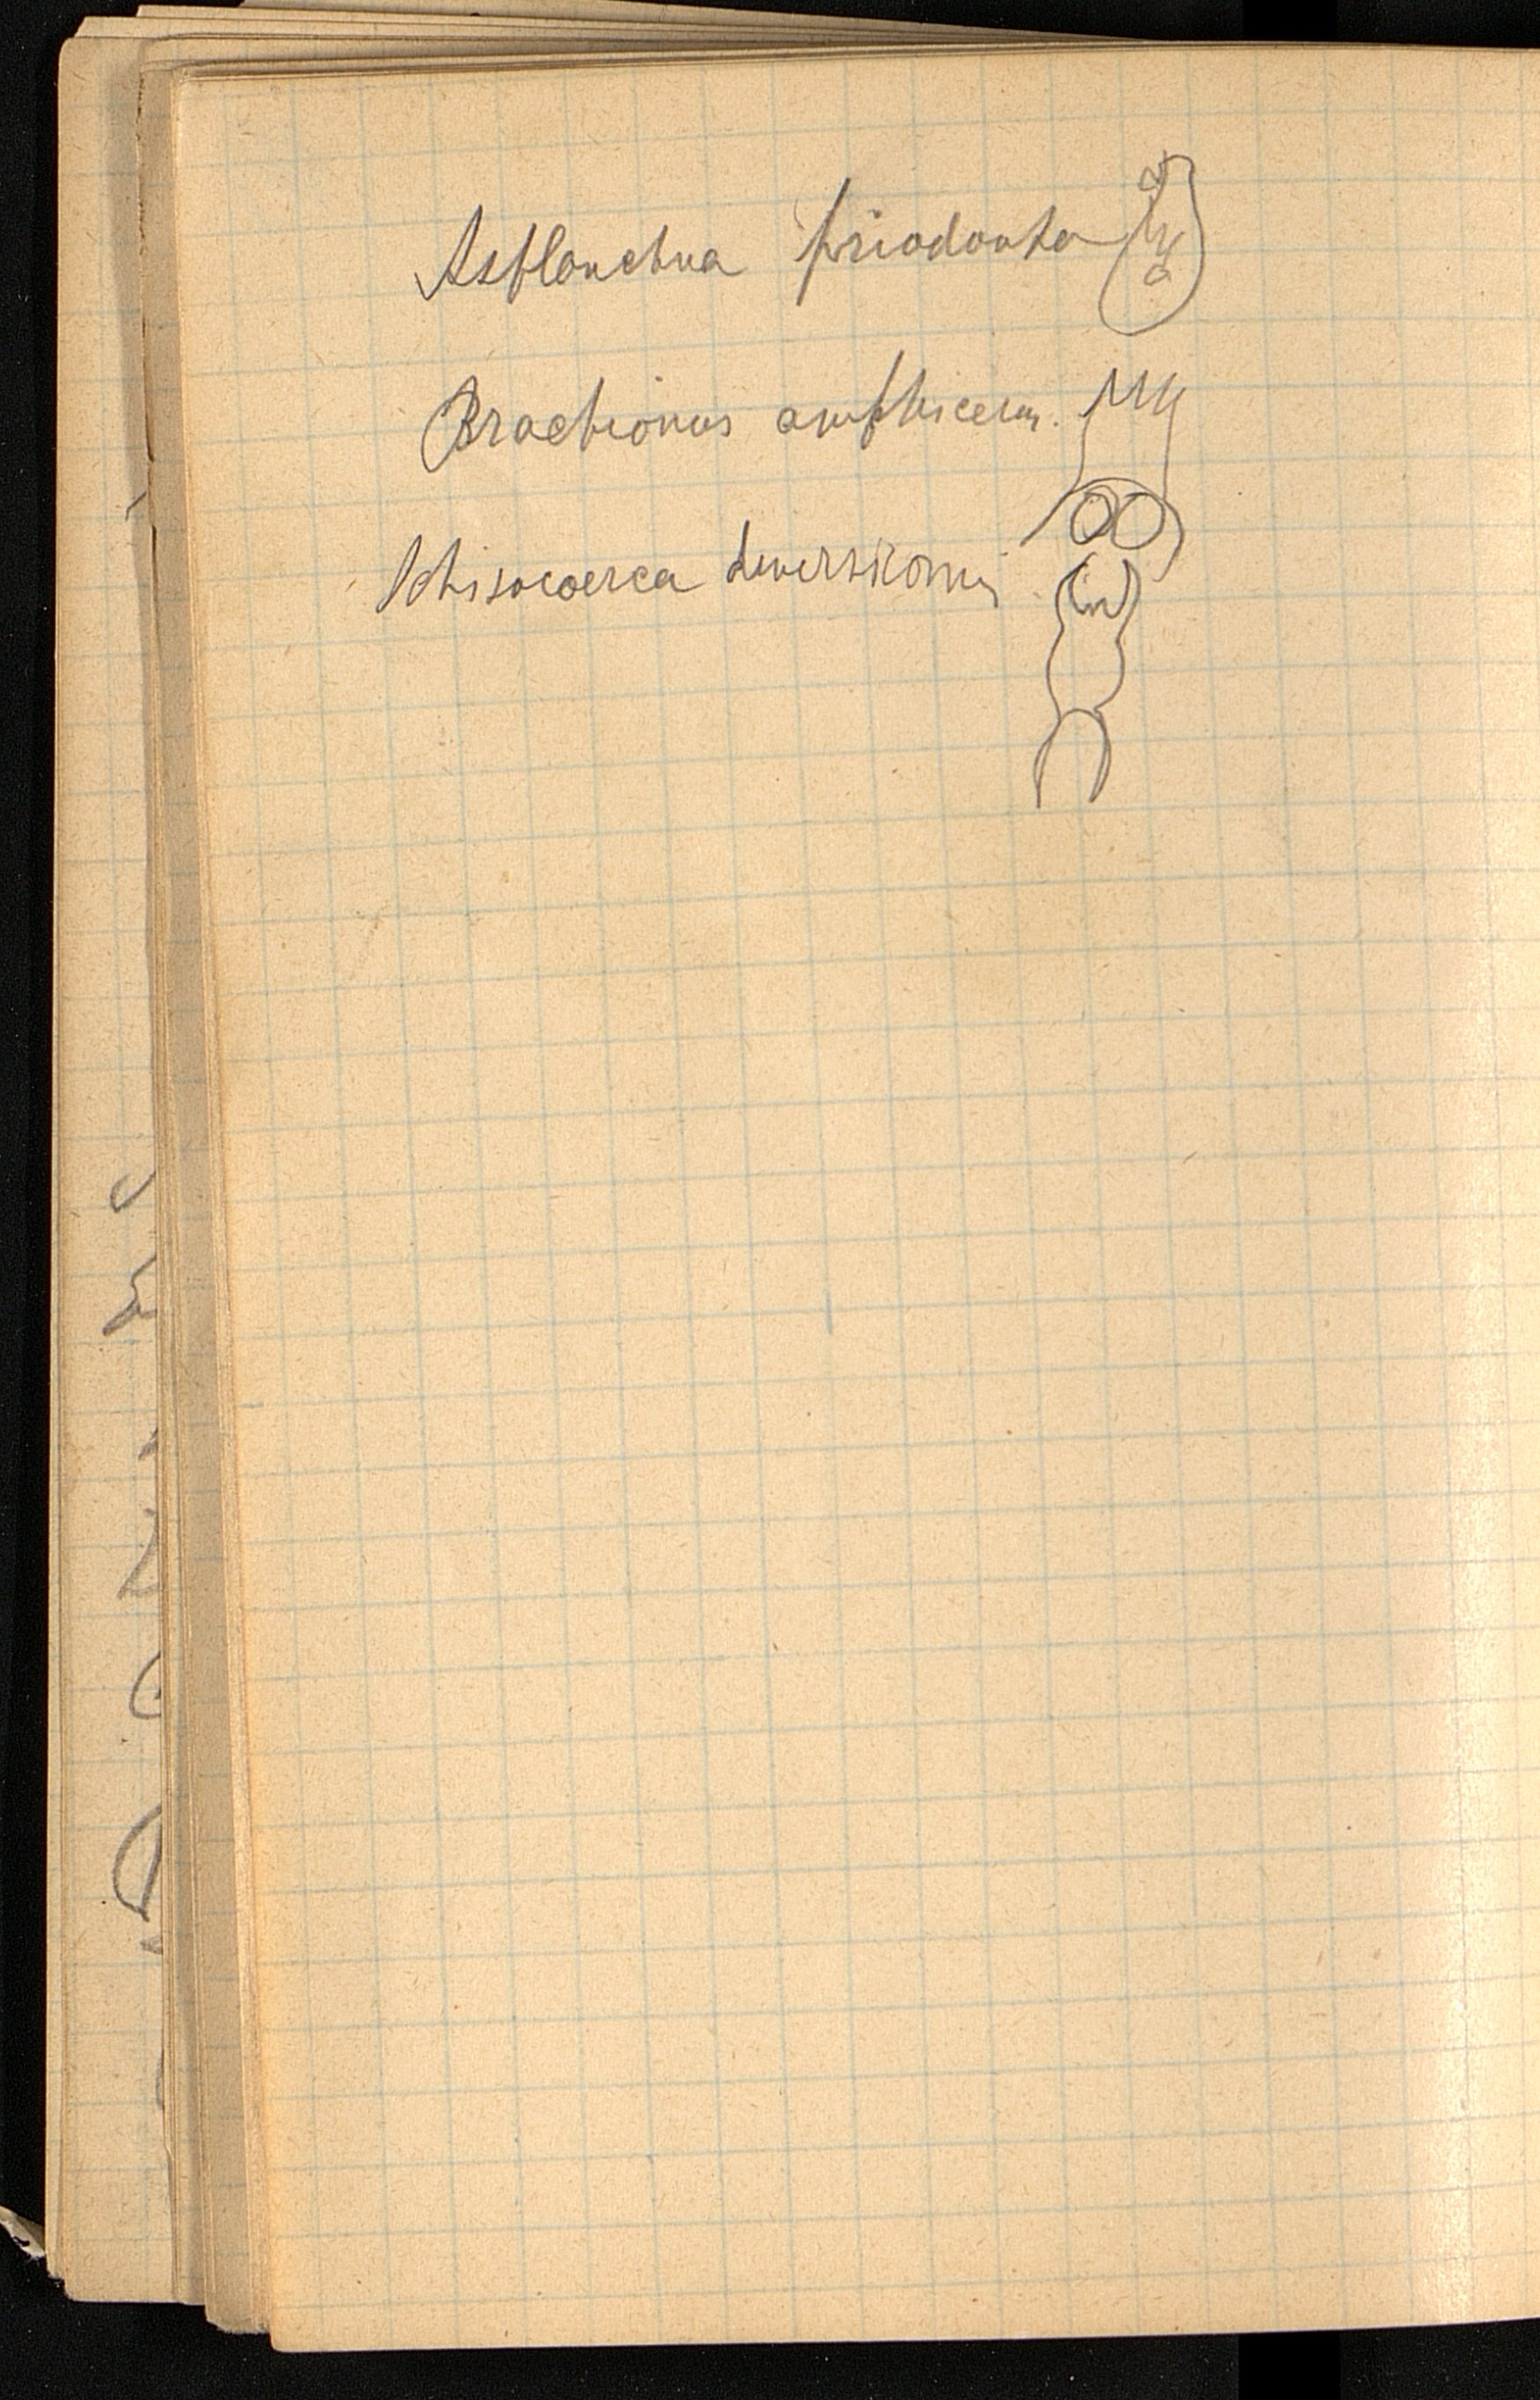 Asplanchna priodonta
Brachionus amphiceros.
Schisocerca diversicornis